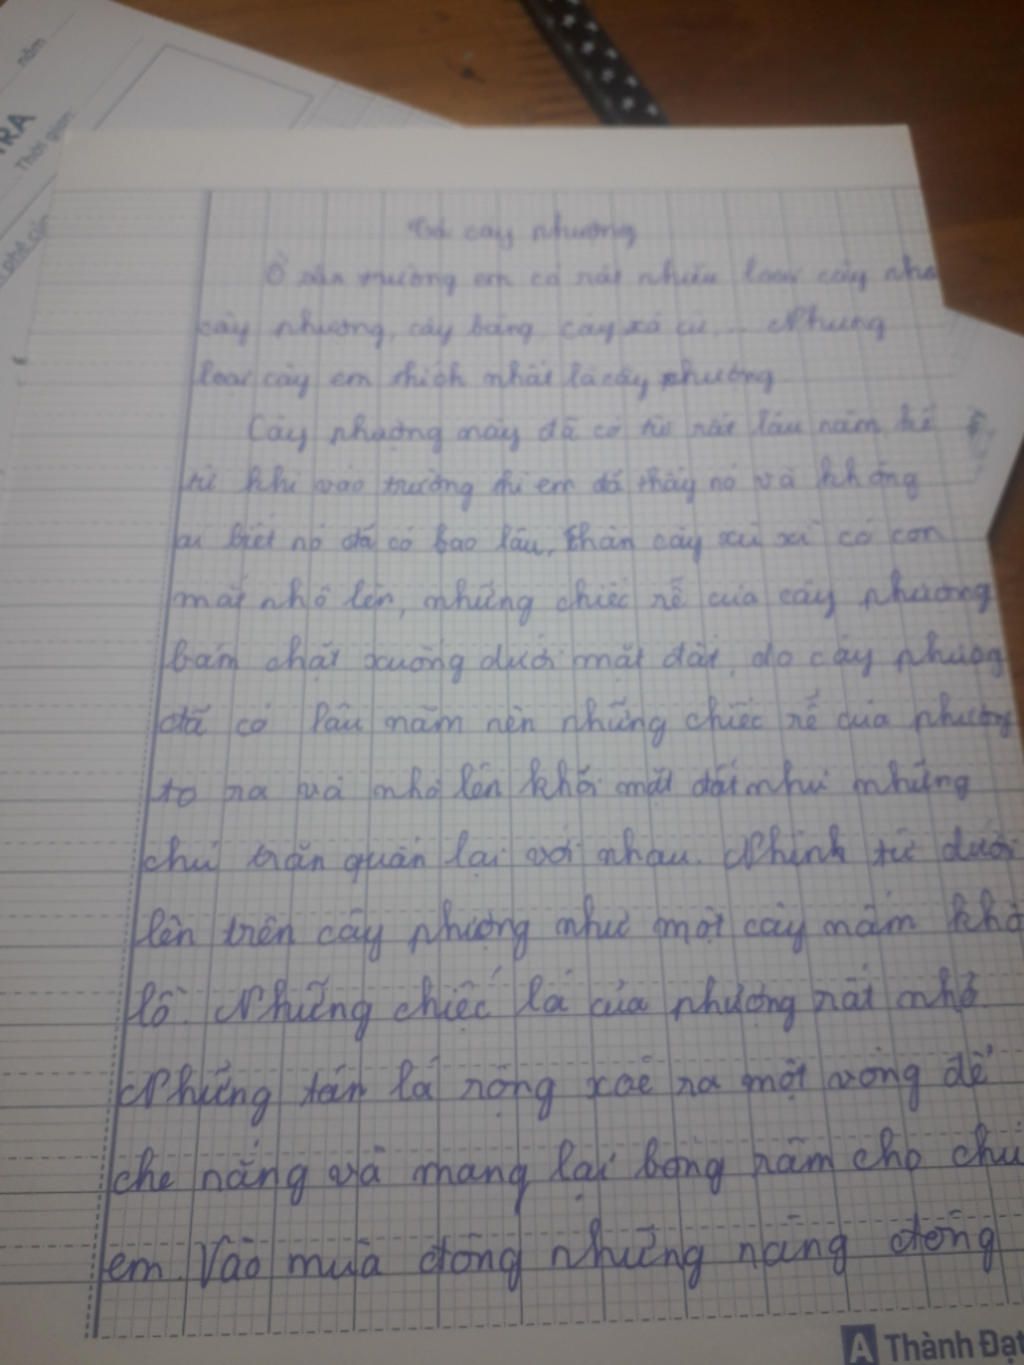 năm
TRA
Thời gian:
Tả cây phượng
Ở sân trường em có rất nhiều loại cây như
cây phượng, cây bàng, cây xà cừ... Nhưng
loại cây em thích nhất là cây phượng
Cây phượng này đã có từ rất lâu năm kể
từ khi vào trường thì em đã thấy nó và không
ai biết nó đã có bao lâu, thân cây xù xì có con
mắt nhô lên, những chiếc rễ của cây phương
bám chặt xuống dưới mặt đất, do cây phượng
đã có lâu năm nên những chiếc rễ của phượng
to ra và nhô lên khỏi mặt đất như những
chú trăn quấn lại với nhau. Nhình từ dưới
lên trên cây phượng như một cây nấm khổ
lồ. Những chiếc lá của phượng rất nhỏ.
Những tán lá rộng xoè ra một vòng để
che nắng và mang lại bóng râm cho chú
em. Vào mùa đông những nàng đông
A Thành Đạt